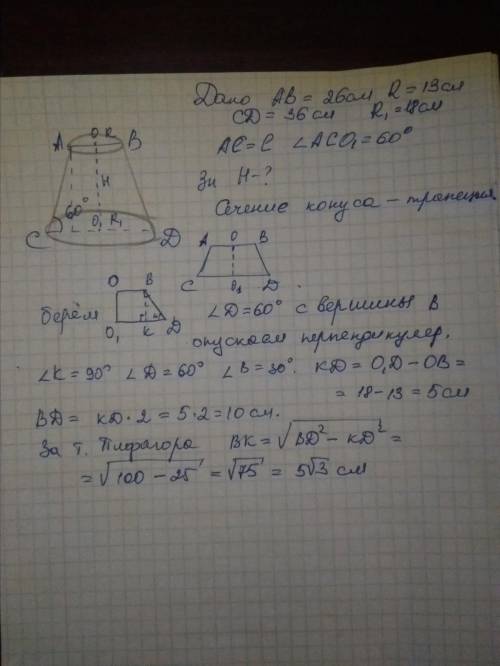 Дано AB = 26см R = 13см
CD = 36 см R₁ = 18см
AC = C ∠ACO₁ = 60°
Зн H - ?
Сечение конуса – трапеция
A O R B
H
60°
C O₁ R₁ D
A O B
C O₁ D
берём O B
O₁ K D
∠D = 60° с вершины B
опускаем перпендикуляр.
∠K = 90° ∠D = 60° ∠B = 30°. KD = O₁D – OB =
= 18 – 13 = 5 см
BD = KD · 2 = 5 · 2 = 10 см.
За т. Пифагора BK = √BD² – KD² =
= √100 – 25 = √75 = 5√3 см